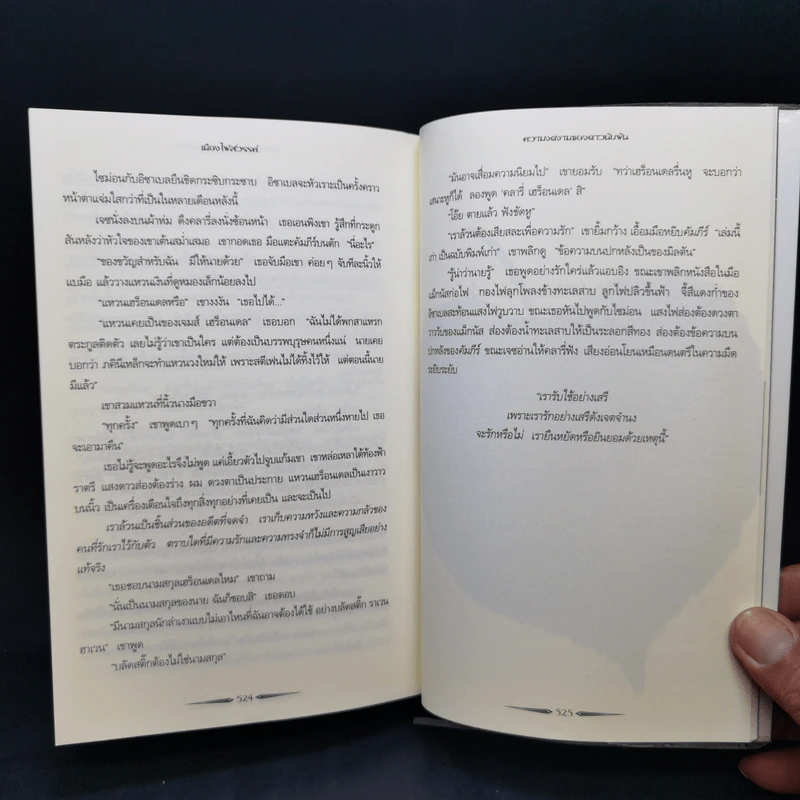 เมืองไฟสวรรค์
ไซม่อนกับอิซาเบลยืนชิดกระซิบกระซาบ อิซาเบลจะหัวเราะเป็นครั้งคราว
หน้าตาแจ่มใสกว่าที่เป็นในหลายเดือนหลังนี้
เจซนั่งลงบนผ้าห่ม ดึงคลารี่ลงนั่งซ้อนหน้า เธอเอนพิงเขา รู้สึกที่กระดูก
สันหลังว่าหัวใจของเขาเต้นสม่ำเสมอ เขากอดเธอ มือแตะคัมภีร์บนตัก “นี่อะไร”
“ของขวัญสำหรับฉัน มีให้นายด้วย” เธอจับมือเขา ค่อยๆ จับทีละนิ้วให้
แบมือ แล้ววางแหวนเงินที่ดูหมองเล็กน้อยลงไป
“แหวนเฮร็อนเดลหรือ” เขางงงัน “เธอไปได้...”
“แหวนเคยเป็นของเจมส์ เฮร็อนเดล” เธอบอก “ฉันไม่ได้พกสาแหรก
ตระกูลติดตัว เลยไม่รู้ว่าเขาเป็นใคร แต่ต้องเป็นบรรพบุรุษคนหนึ่งแน่ นายเคย
บอกว่า ภคินีเหล็กจะทำแหวนวงใหม่ให้ เพราะสตีเฟนไม่ได้ทิ้งไว้ให้ แต่ตอนนี้นาย
มีแล้ว”
เขาสวมแหวนที่นิ้วนางมือขวา
“ทุกครั้ง” เขาพูดเบาๆ “ทุกครั้งที่ฉันคิดว่ามีส่วนใดส่วนหนึ่งหายไป เธอ
จะเอามาคืน”
เธอไม่รู้จะพูดอะไรจึงไม่พูด แค่เอี้ยวตัวไปจูบแก้มเขา เขาหล่อเหลาใต้ท้องฟ้า
ราตรี แสงดาวส่องต้องร่าง ผม ดวงตาเป็นประกาย แหวนเฮร็อนเดลเป็นเงาวาว
บนนิ้ว เป็นเครื่องเตือนใจถึงทุกสิ่งทุกอย่างที่เคยเป็น และจะเป็นไป
เราล้วนเป็นชิ้นส่วนของอดีตที่จดจำ เราเก็บความหวังและความกลัวของ
คนที่รักเราไว้กับตัว ตราบใดที่มีความรักและความทรงจำก็ไม่มีการสูญเสียอย่าง
แท้จริง
“เธอชอบนามสกุลเฮร็อนเดลไหม” เขาถาม
“นั่นเป็นนามสกุลของนาย ฉันก็ชอบสิ” เธอตอบ
“มีนามสกุลนักล่าเงาแบบไม่เอาไหนที่ฉันอาจต้องได้ใช้ อย่างบลัดสติ๊ก ราเวน
ฮาเวน” เขาพูด
“บลัดสติ๊กต้องไม่ใช่นามสกุล”
524
ความงดงามของดาวนับพัน
“มันอาจเสื่อมความนิยมไป” เขายอมรับ “ทว่าเฮร็อนเดลรื่นหู จะบอกว่า
เสนาะหูก็ได้ ลองพูด ‘คลารี่ เฮร็อนเดล’ สิ”
“โอ๊ย ตายแล้ว ฟังขัดหู”
“เราล้วนต้องเสียสละเพื่อความรัก” เขายิ้มกว้าง เอื้อมมือหยิบคัมภีร์ “เล่มนี้
เก่า เป็นฉบับพิมพ์เก่า” เขาพลิกดู “ข้อความบนปกหลังเป็นของมิลตัน”
“รู้น่าว่านายรู้” เธอพูดอย่างรักใคร่แล้วแอบอิง ขณะเขาพลิกหนังสือในมือ
แม็กนัสก่อไฟ กองไฟลุกโพลงข้างทะเลสาบ ลูกไฟปลิวขึ้นฟ้า จี้สีแดงก่ำของ
อิซาเบลสะท้อนแสงไฟวูบวาบ ขณะเธอหันไปพูดกับไซม่อน แสงไฟส่องต้องดวงตา
วาวรับของแม็กนัส ส่องต้องน้ำทะเลสาบให้เป็นระลอกสีทอง ส่องต้องข้อความบน
ปกหลังของคัมภีร์ ขณะเจซอ่านให้คลารี่ฟัง เสียงอ่อนโยนเหมือนดนตรีในความมืด
ระยิบระยับ
“เรารับใช้อย่างเสรี
เพราะเรารักอย่างเสรีดังเจตจำนง
จะรักหรือไม่ เรายืนหยัดหรือยินยอมด้วยเหตุนี้”
525